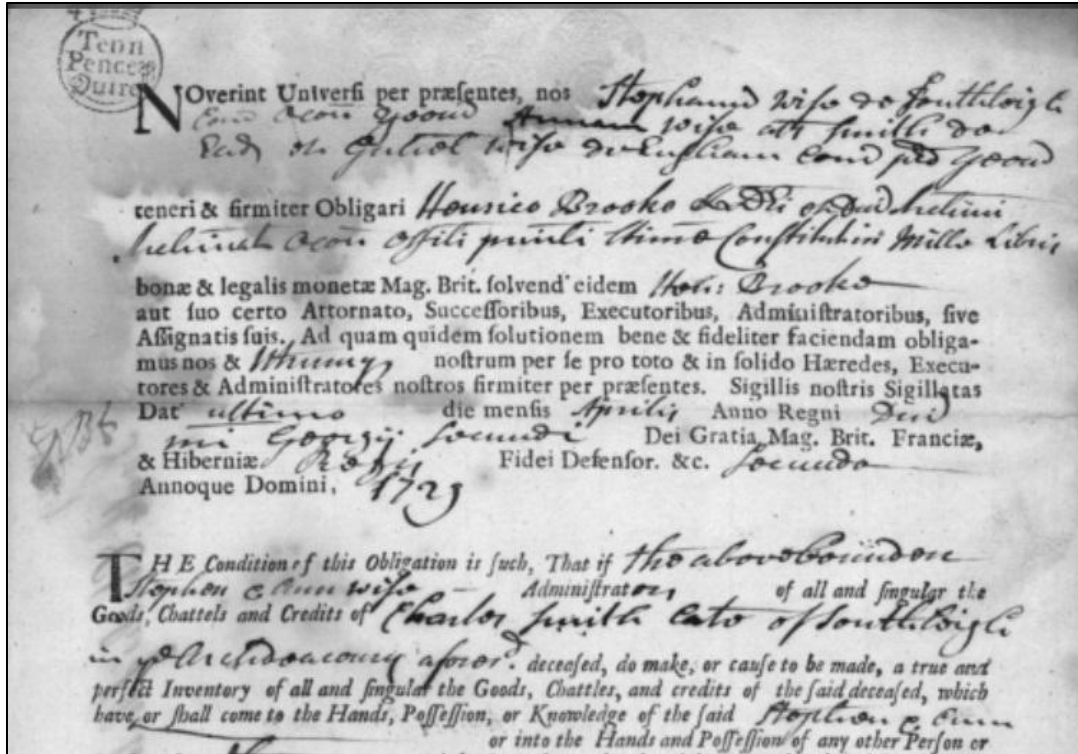 Tenn
Pence pr
Quire
NOverint Universi per præsentes, nos Stephanu Wise de Southleigh
Com Oxon Yeom Annam Wise als Smith de
Ead Wise de Ensham Com pred Yeom
teneri & firmiter Obligari Henrico Brooke
Oxon Constitutin Mille Libris
bonæ & legalis monetæ Mag. Brit. solvend' eidem Henr: Brooke
aut suo certo Attornato, Successoribus, Executoribus, Administratoribus, sive
Assignatis suis. Ad quam quidem solutionem bene & fideliter faciendam obliga-
mus nos & utrumq nostrum per se pro toto & in solido Hæredes, Execu-
tores & Administratores nostros firmiter per præsentes. Sigillis nostris Sigillatas
Dat' ultimo die mensis Aprilis Anno Regni Dni
nri Georgij Secundi Dei Gratia Mag. Brit. Franciæ,
& Hiberniæ Regis Fidei Defensor. &c. Secundo
Annoque Domini, 1729
THE Condition of this Obligation is such, That if the above bounden
Stephen & Ann Wise Administrators of all and singular the
Goods, Chattels and Credits of Charles Smith late of Southleigh
in ye Archdeaconry afores. deceased, do make, or cause to be made, a true and
perfect Inventory of all and singular the Goods, Chattles, and credits of the said deceased, which
have or shall come to the Hands, Possession, or Knowledge of the said Stephen & Ann
or into the Hands and Possession of any other Person or